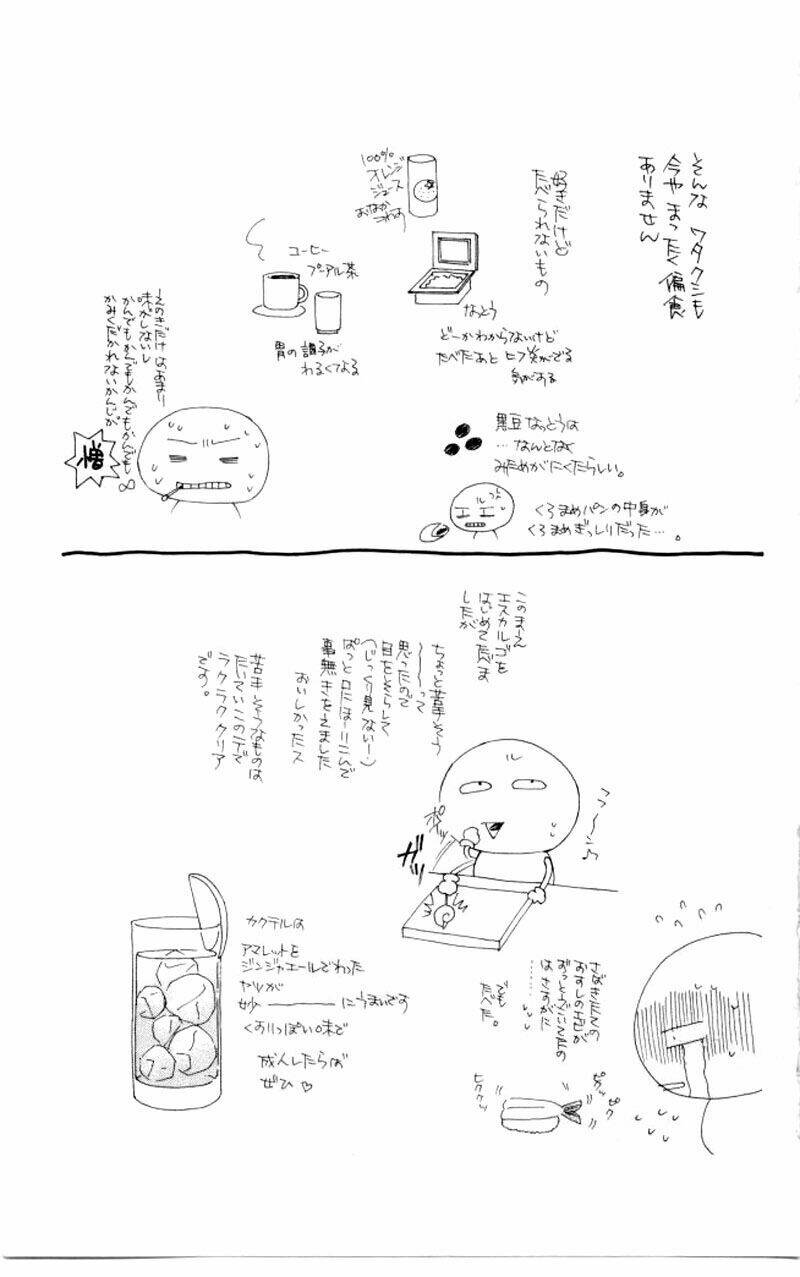 そんな ワタクシも
今や まったく 偏食
ありません
好きだけど
たべられないもの
100%
オレンジ
ジュース
おなか
こわす
なっとう
どーかわからないけど
たべたあと ヒフ炎がでる
気がある
コーヒー
プーアル茶
胃の調子が
わるくてよる
えのきだけ はあまりー
味がしないし
かんでもかんでもかんでもかんでも
かみくだかれないかんじが
憎
黒豆なっとうは
…なんとなく
みためがにくたらしい。
くろまめパンの中身が
くろまめぎっしりだった…。
このまーえ
エスカルゴを
はじめてたべま
したが
ちょっと苦手そう
〜〜〜って
思ったので
目をそらして
(じっくり見ないー)
ぱっと口にほーりこんで
事無きをえました
おいしかったス
苦手そうなものは
たいていこのテで
ラクラククリア
です。
フフ〜〜ン♪
ポイッ
ガッ
カクテルは
アマレットを
ジンジャエールでわった
ヤツが
妙――――にうまいです
くすりっぽい味で
成人したらば
ぜひ♡
さばきたての
おすしのエビが
おっとうごいてたの
は さすがに
………
でも
たべた。
ピクッ
ピク
ヒククッ